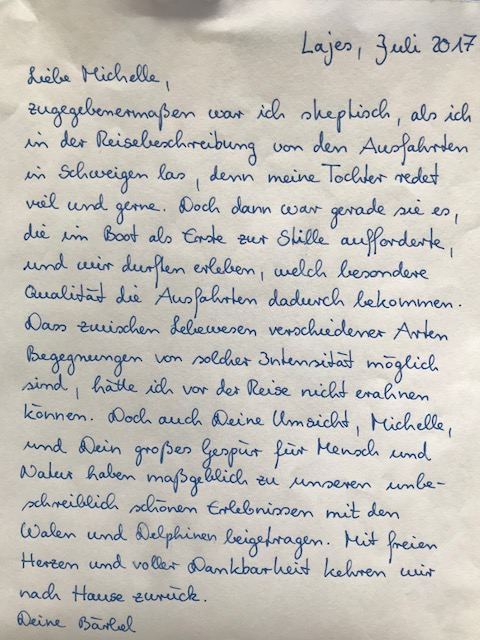 Lajes, Juli 2017
Liebe Michelle,
zugegebenermaßen war ich skeptisch, als ich
in der Reisebeschreibung von den Ausfahrten
in Schweigen las, denn meine Tochter redet
viel und gerne. Doch dann war gerade sie es,
die im Boot als Erste zur Stille aufforderte,
und wir durften erleben, welch besondere
Qualität die Ausfahrten dadurch bekommen.
Dass zwischen Lebewesen verschiedener Arten
Begegnungen von solcher Intensität möglich
sind, hätte ich vor der Reise nicht erahnen
können. Doch auch Deine Umsicht, Michelle,
und Dein großes Gespür für Mensch und
Natur haben maßgeblich zu unseren unbe-
schreiblich schönen Erlebnissen mit den
Walen und Delphinen beigetragen. Mit freien
Herzen und voller Dankbarkeit kehren wir
nach Hause zurück.
Deine Bärbel